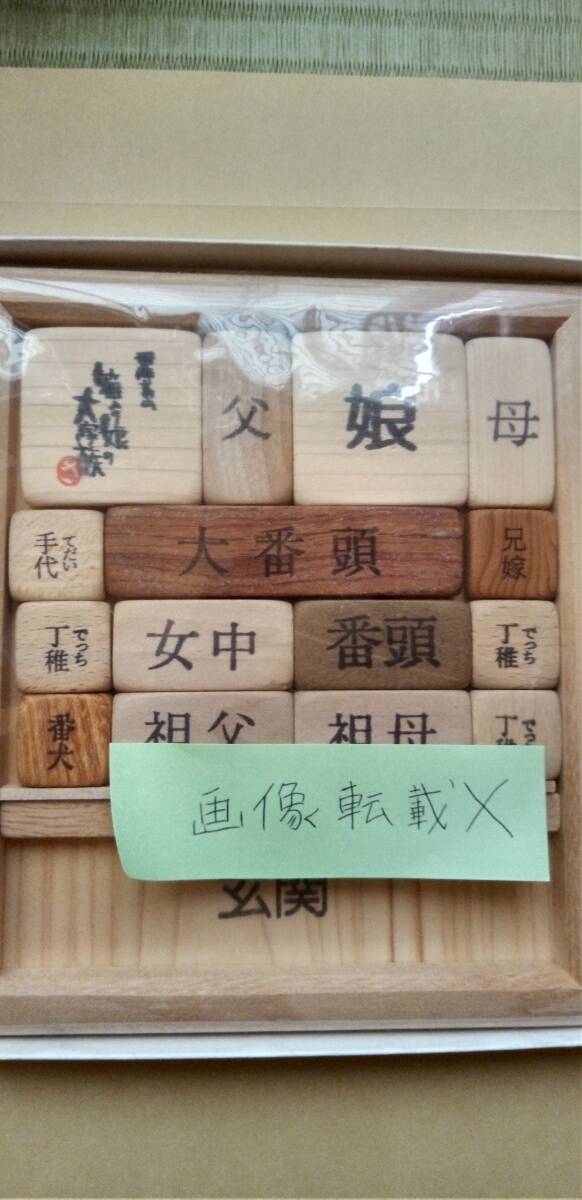 箱入り娘の
大家族
父
娘
母
手代
てだい
大番頭
兄嫁
丁稚
でっち
女中
番頭
丁稚
でっち
番犬
祖父
祖母
丁稚
でっ
画像転載✕
玄関